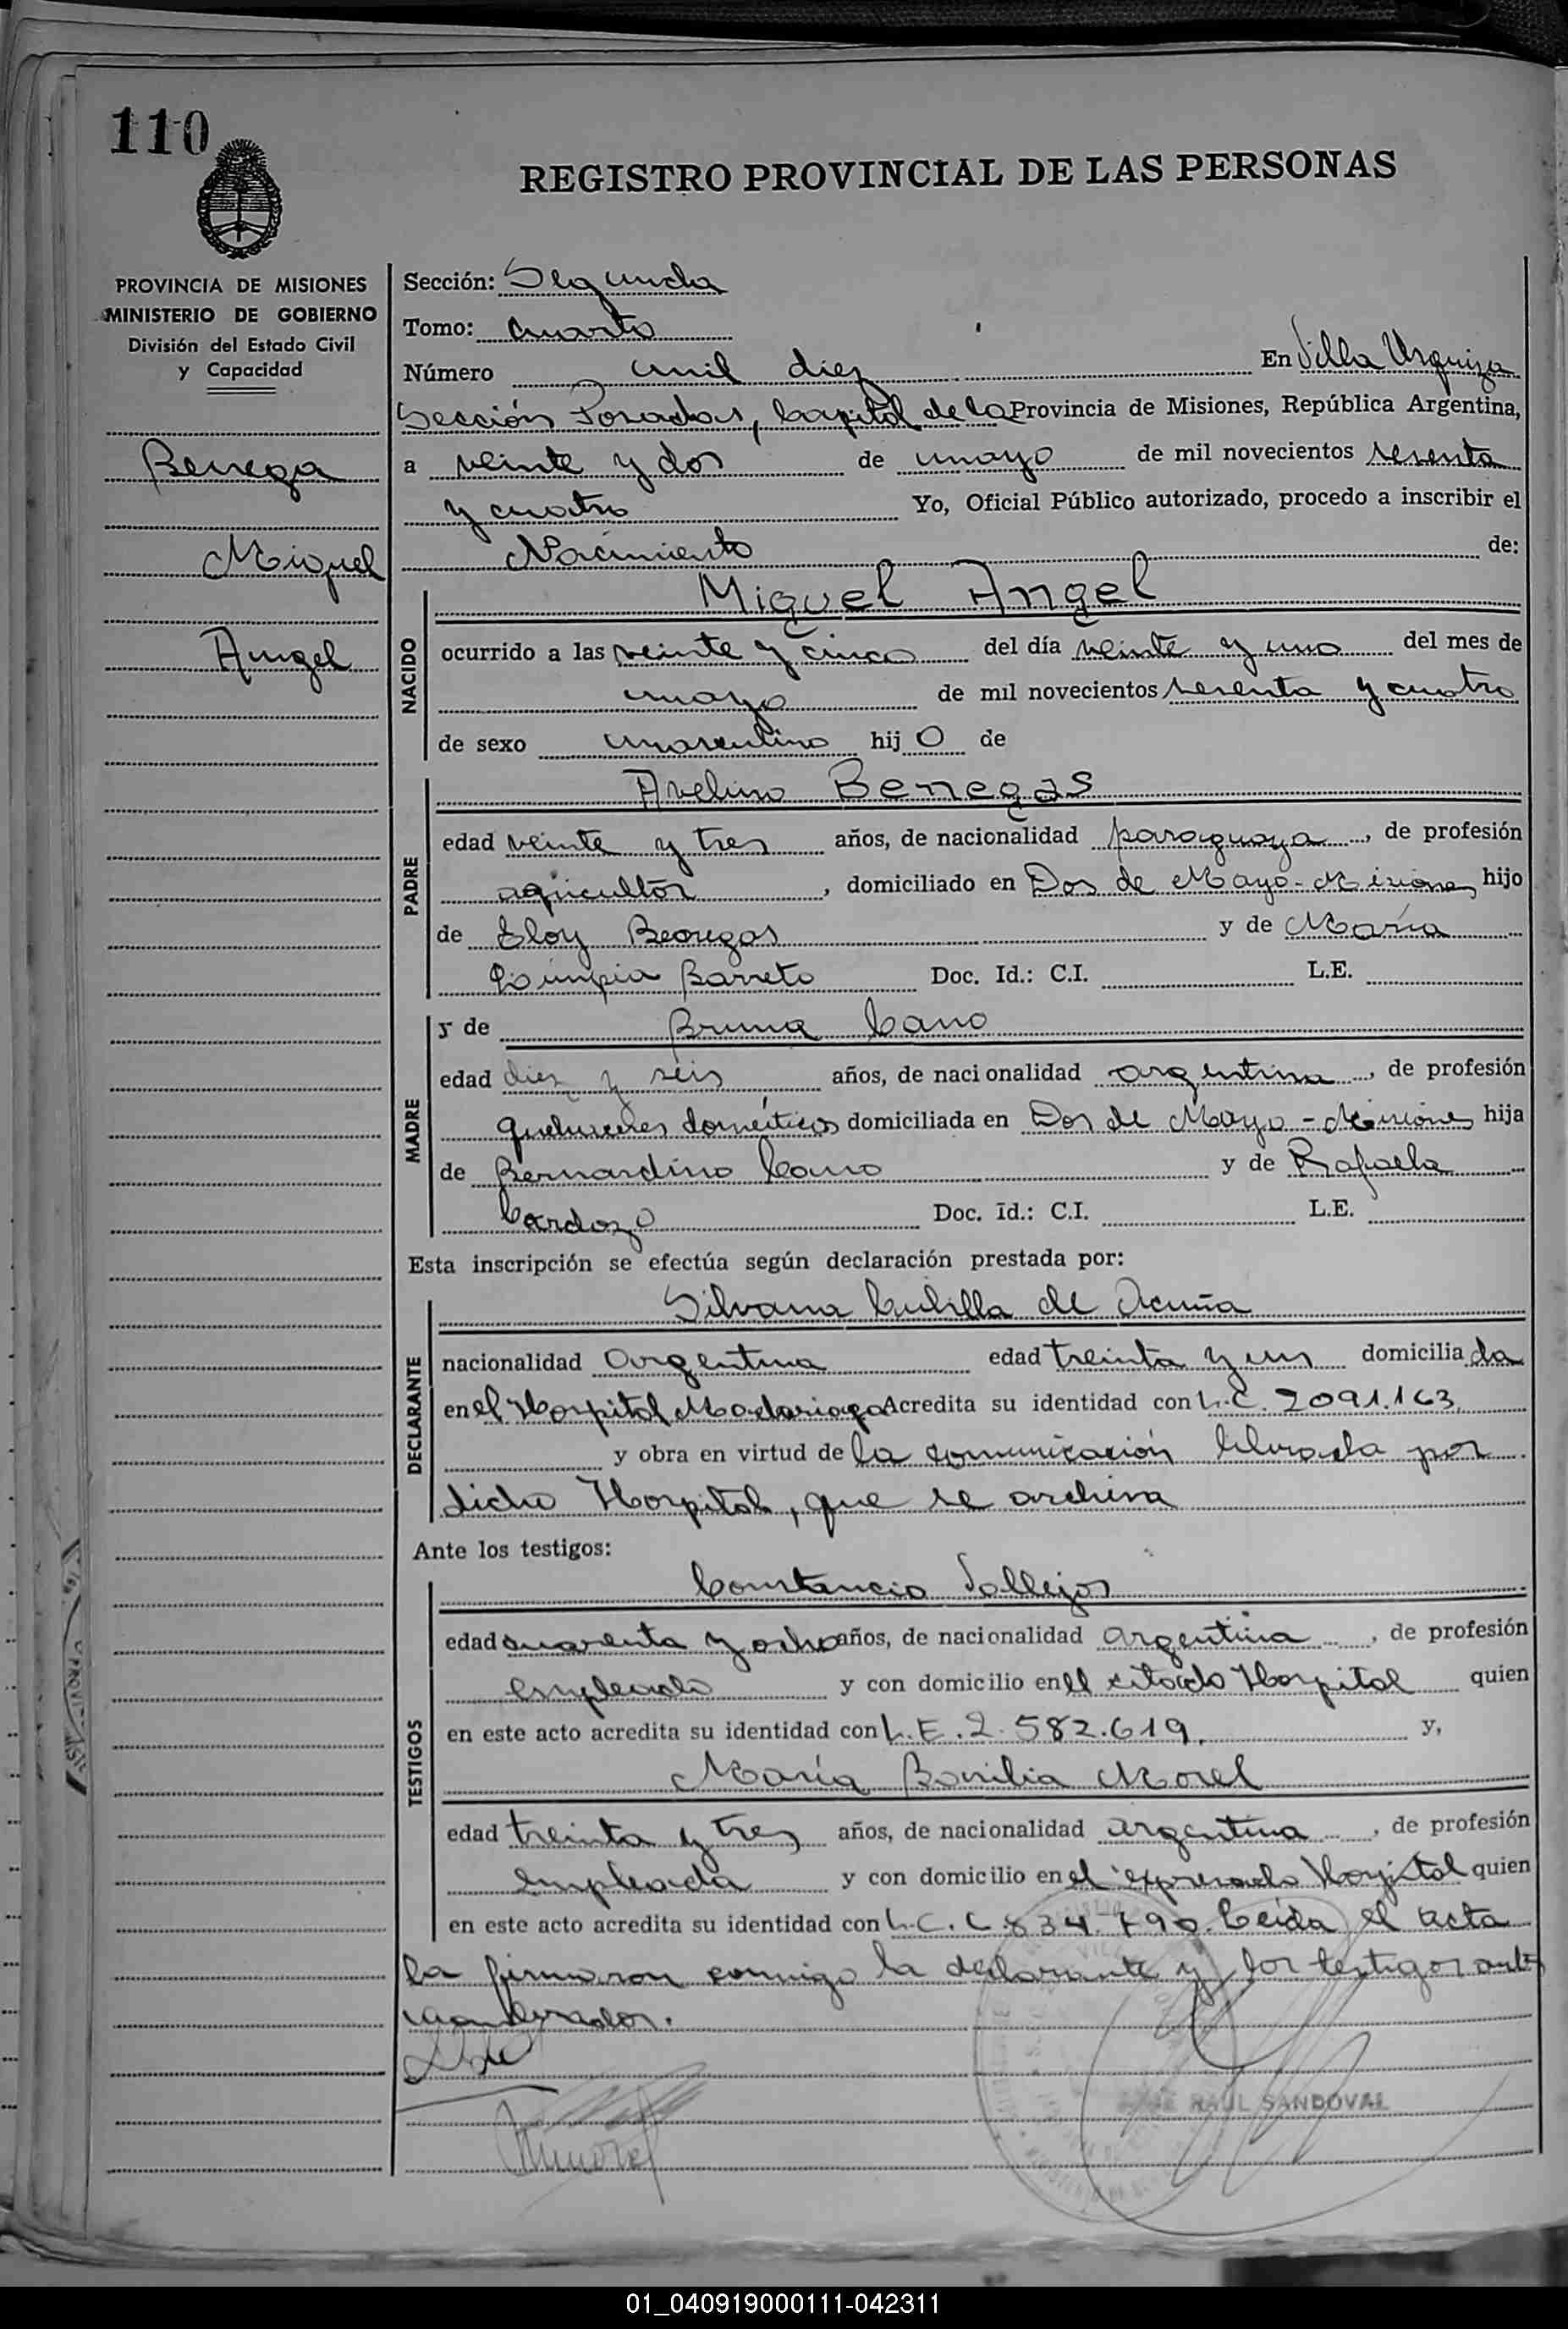 110
REGISTRO PROVINCIAL DE LAS PERSONAS
PROVINCIA DE MISIONES
MINISTERIO DE GOBIERNO
División del Estado Civil
y Capacidad
Benega
Miguel
Angel
Sección: Segunda
Tomo: Cuarto
Número mil diez En Villa Urquiza
Sección Posadas, Capital de la Provincia de Misiones, República Argentina,
a veinte y dos de mayo de mil novecientos sesenta
y cuatro Yo, Oficial Público autorizado, procedo a inscribir el
Nacimiento de:
Miguel Angel
NACIDO
ocurrido a las veinte y cinco del día veinte y uno del mes de
mayo de mil novecientos sesenta y cuatro
de sexo masculino hijo de
Avelino Benegas
PADRE
edad veinte y tres años, de nacionalidad paraguaya, de profesión
agricultor, domiciliado en Dos de Mayo - Misiones hijo
de Eloy Benegas y de María
Limpia Barreto Doc. Id.: C.I. L.E.
MADRE
y de Bruna Cano
edad diez y seis años, de nacionalidad argentina, de profesión
quehaceres domésticos domiciliada en Dos de Mayo - Misiones hija
de Bernardino Cano y de Rafaela
Cardozo Doc. Id.: C.I. L.E.
Esta inscripción se efectúa según declaración prestada por:
Silvana Cubilla de Acuña
DECLARANTE
nacionalidad argentina edad treinta y un domiciliada
en el Hospital Madariaga Acredita su identidad con L.C. 2091.163.
y obra en virtud de la comunicación librada por
dicho Hospital, que se archiva
Ante los testigos:
Constancio Vallejos
TESTIGOS
edad cuarenta y ocho años, de nacionalidad argentina, de profesión
empleado y con domicilio en el citado Hospital quien
en este acto acredita su identidad con L.E. 2.582.619. y,
María Morel
edad treinta y tres años, de nacionalidad argentina, de profesión
empleada y con domicilio en el expresado Hospital quien
en este acto acredita su identidad con L.C. Leída el acta
la firmaron conmigo la declarante y los testigos ante
mencionados.
RAUL SANDOVAL
01_040919000111-042311